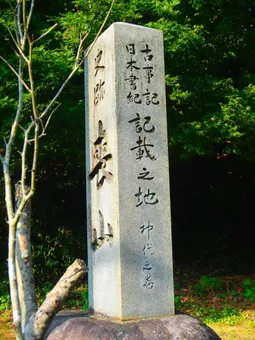 古事記
日本書紀
記載之地
神代之
史跡 喪山